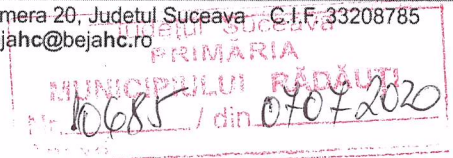 mera 20, Judetul Suceava C.I.F. 33208785
jahc@bejahc.ro
Judetul Suceava
PRIMĂRIA
MUNICIPIULUI RĂDĂUȚI
Nr. 10685 / din 07072020